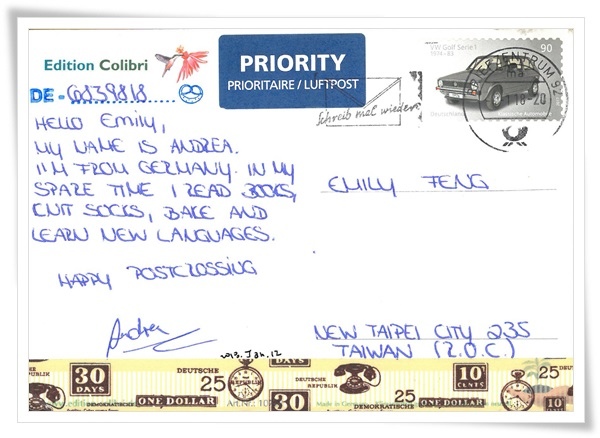 Edition Colibri
PRIORITY
PRIORITAIRE / LUFTPOST
VW Golf Serie I
1974 - 83
90
Schreib mal wieder
DE - 6839818
HELLO EMILY,
MY NAME IS ANDREA.
I'M FROM GERMANY. IN MY
SPARE TIME I READ BOOKS,
KNIT SOCKS, BAKE AND
LEARN NEW LANGUAGES.
HAPPY POSTCROSSING
Andrea
EMILY FENG
NEW TAIPEI CITY 235
TAIWAN (R.O.C.)
2013. Jan. 12
30
DAYS
DEUTSCHE
REPUBLIK
25
ONE DOLLAR
DEMOKRATISCHE
30
DEUTSCHE
25
10
CENTS
ONE DOLLAR